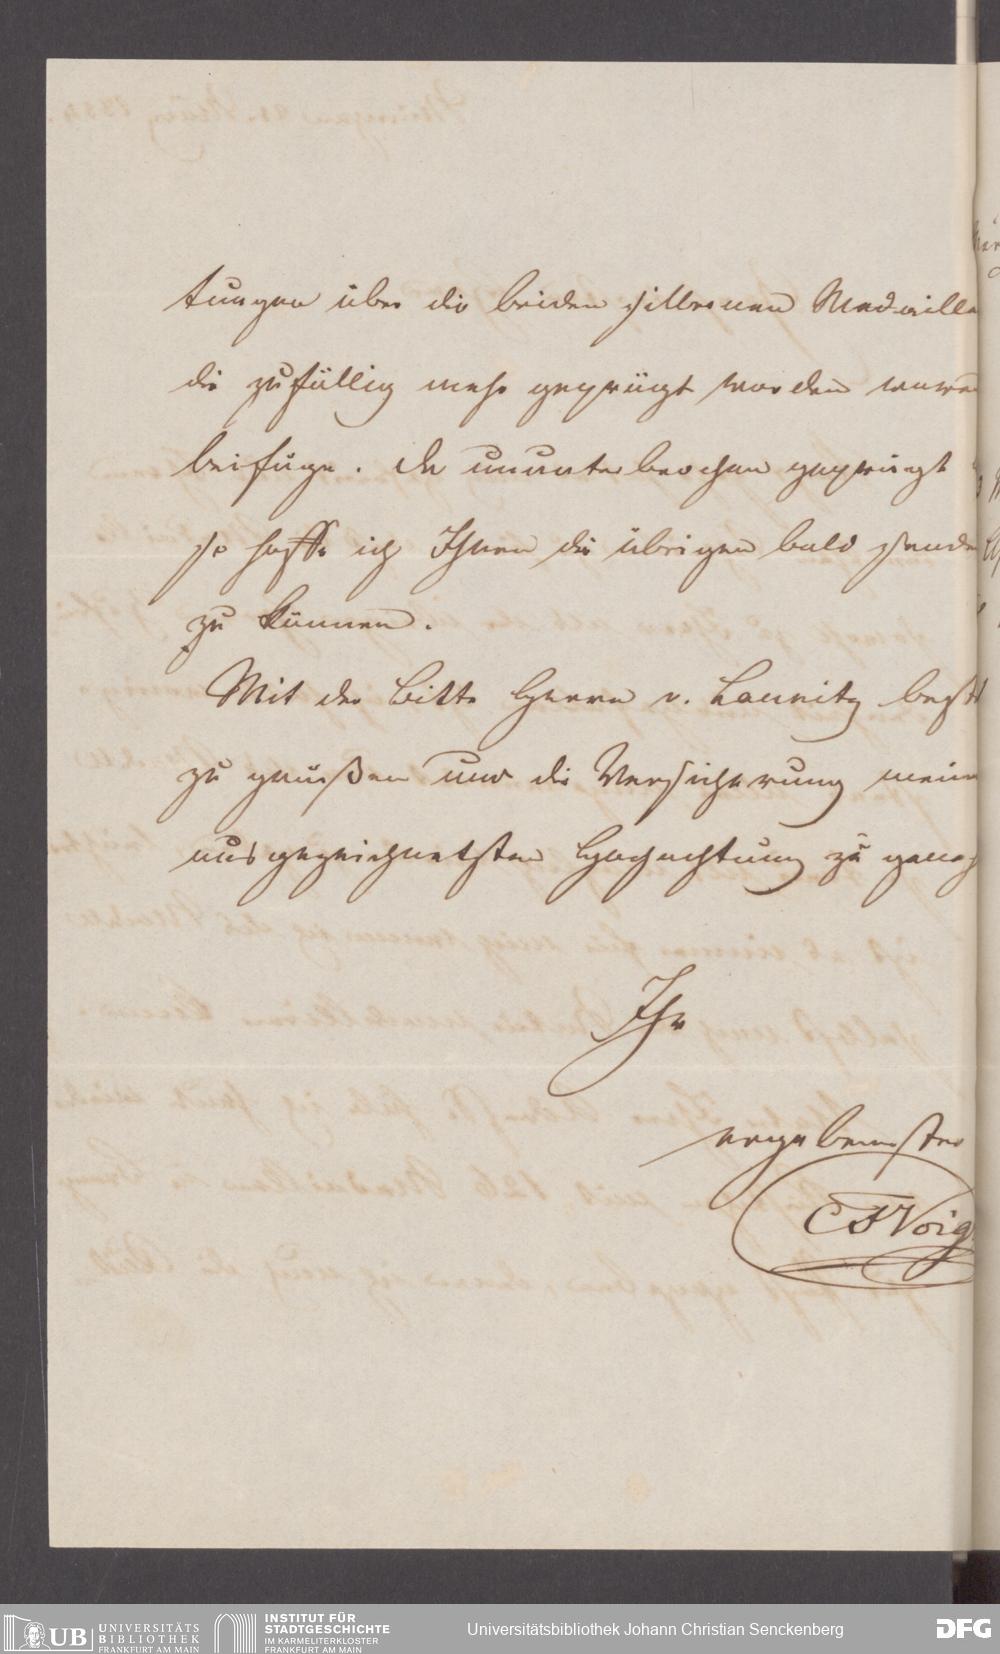 tungen über die beiden silbernen Medaille
die zufällig mehr geprägt worden waren
beifüge. Da ununterbrochen geprägt
so hoffe ich Ihnen die übrigen bald sende
zu können.
Mit der Bitte Herrn v. Launitz best
zu grüßen und die Versicherung mein
ausgezeichnetsten Hochachtung zu geneh
Ihr
ergebenster
CFVoig
UB UNIVERSITÄTS
BIBLIOTHEK
FRANKFURT AM MAIN
INSTITUT FÜR
STADTGESCHICHTE
IM KARMELITERKLOSTER
FRANKFURT AM MAIN
Universitätsbibliothek Johann Christian Senckenberg
DFG